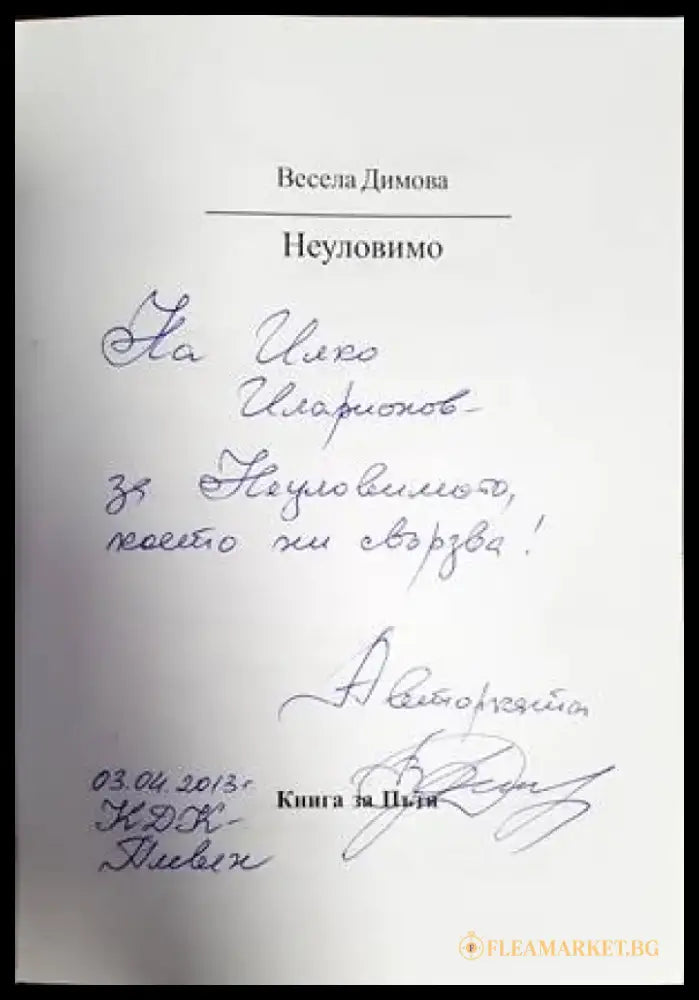 Весела Димова
Неуловимо
На Илко
Иларионов –
за Неуловимото,
което ни свързва!
Авторката
03.04.2013 г
Книга за Пътя
КДК –
Плевен
FLEAMARKET.BG